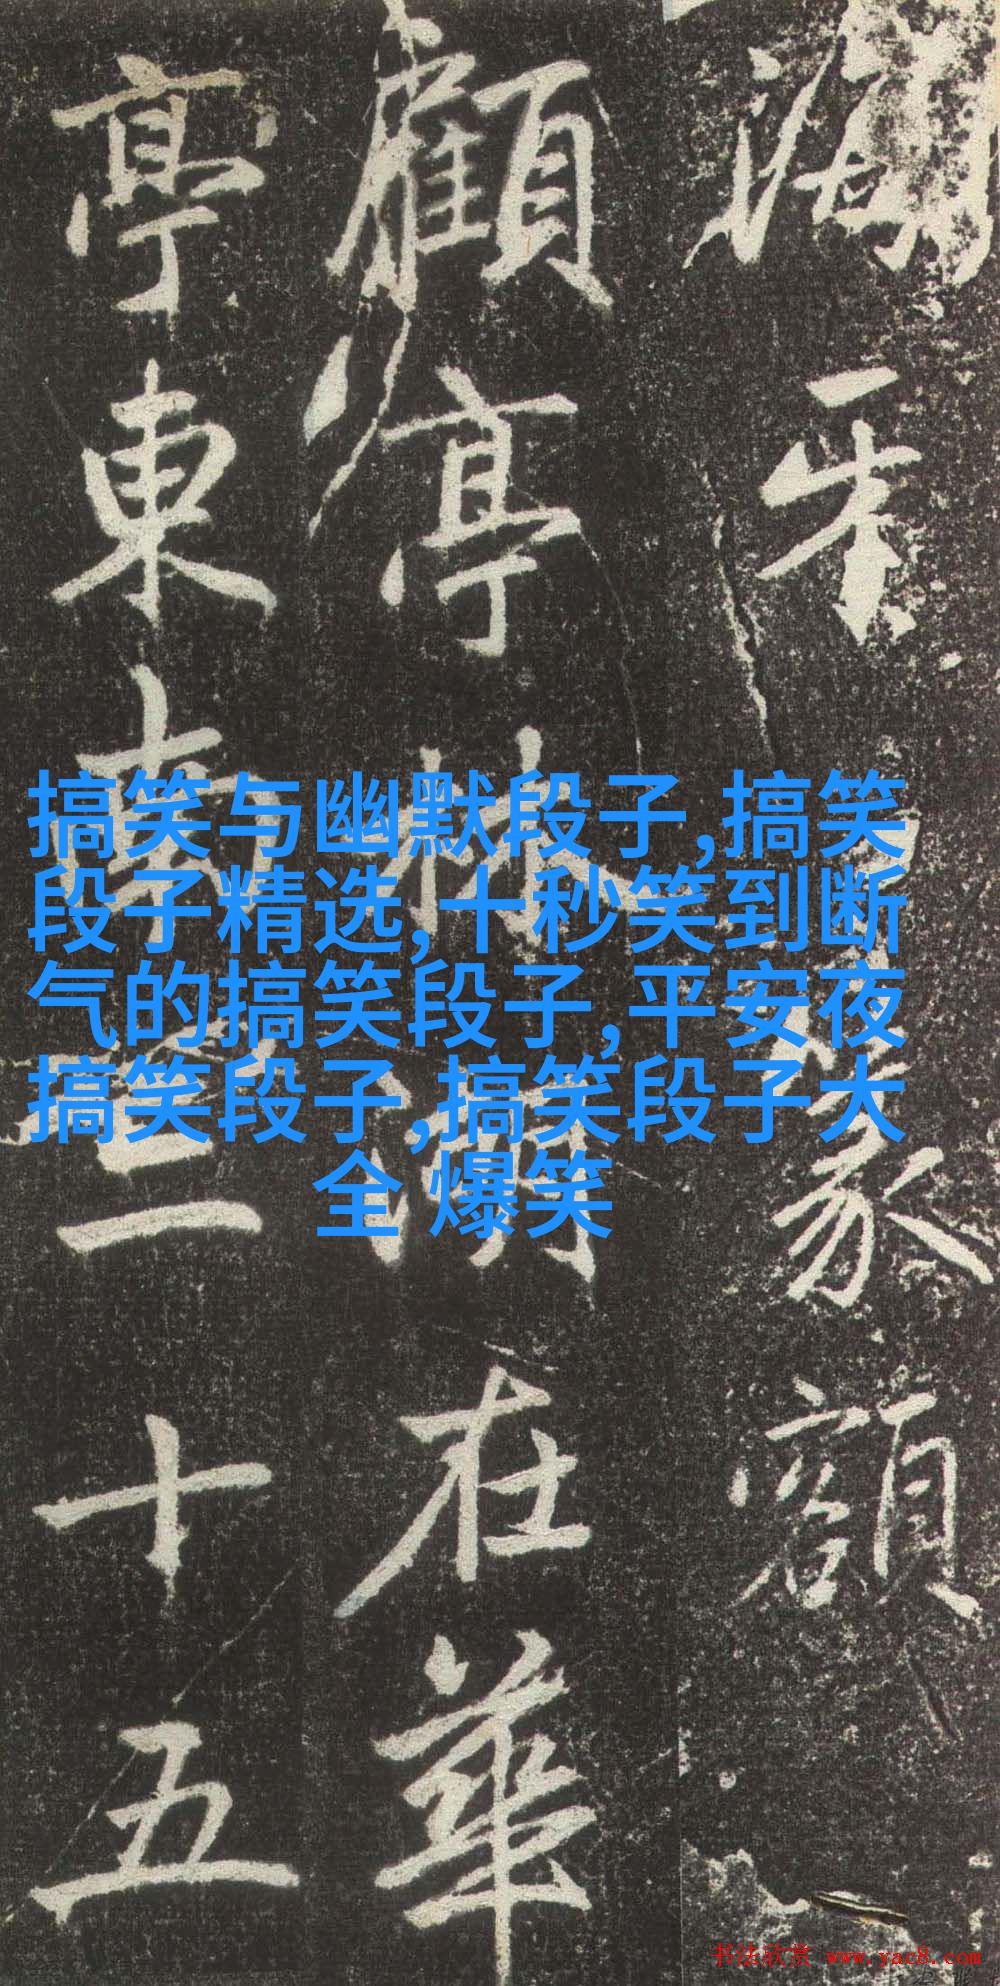 顧亭林湖在華
亭東南三十五
搞笑与幽默段子,搞笑
段子精选,十秒笑到断
气的搞笑段子,平安夜
搞笑段子,搞笑段子大
全 爆笑
书法欣赏 www.yac8.com